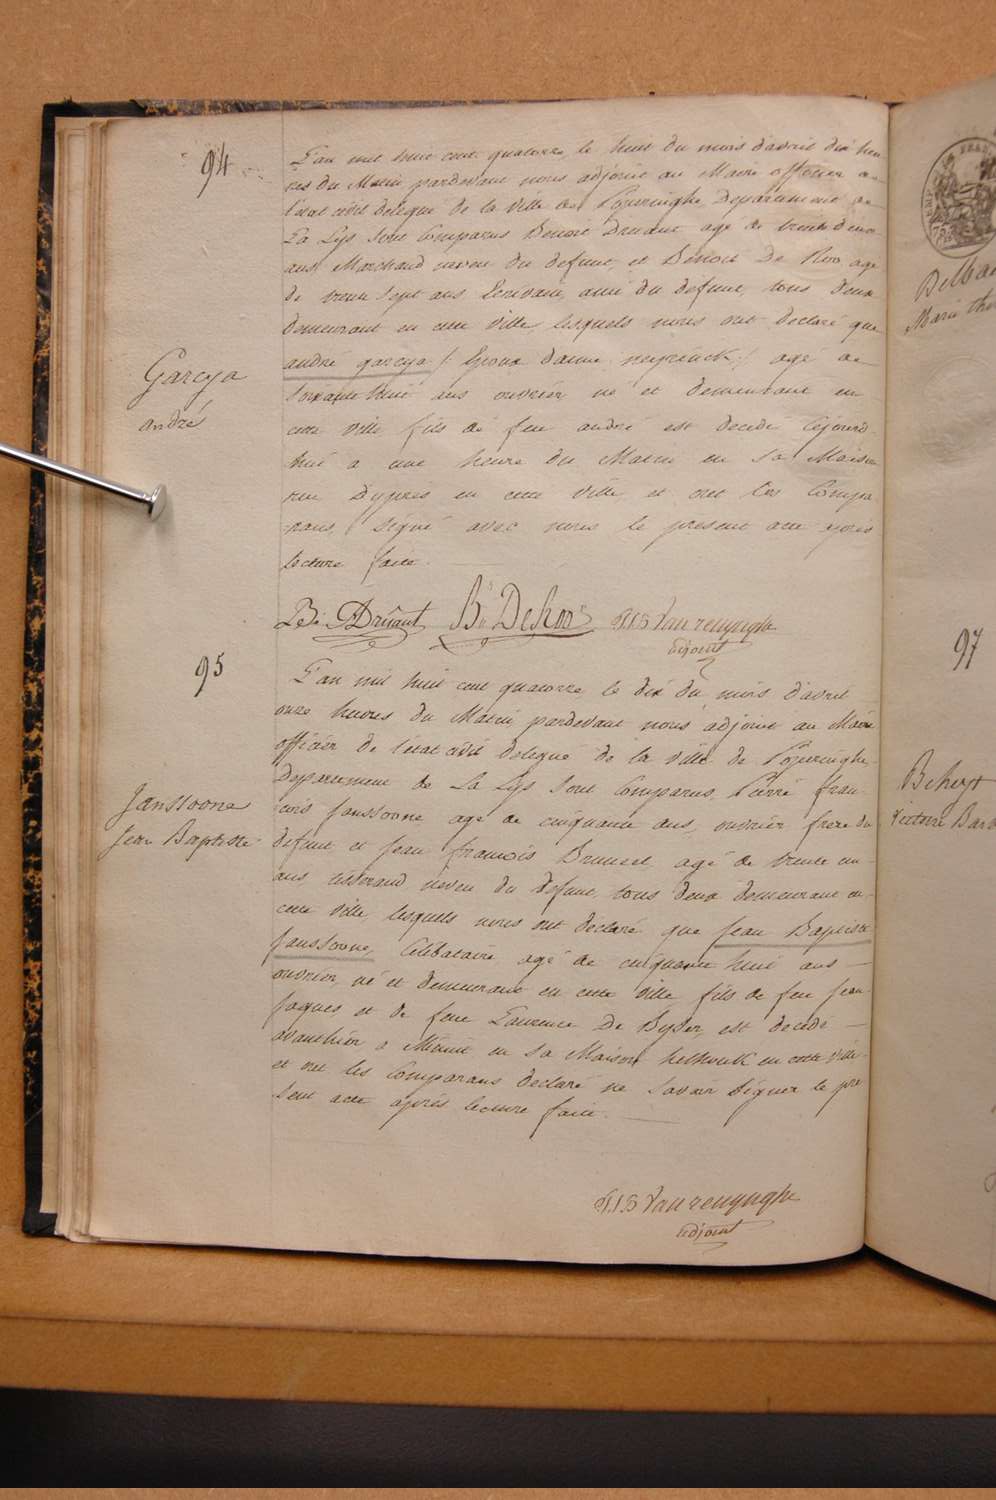 94
L'an mil huit cent quatorze, le huit du mois d'avril dix heu
res du Matin pardevant nous adjoint au Maire officier de
l'état civil delegué de la Ville de Poperinghe Departement de
La Lys sont Comparus Benoit Druant agé de trente deux
ans Marchand neveu du defunt, et Benoit De Roo agé
de vingt sept ans Ecrivain, ami du defunt, tous deux
demeurant en cette Ville, lesquels nous ont declaré que
andré garcya /: Epoux d'anne :/ agé de
soixante huit ans ouvrier né et demeurant en
cette ville fils de feu andré est decedé cejourd
hui a une heure du Matin en sa Maison
rue Dypres en cette ville, et ont les Compa
rans, signé avec nous le present acte après
lecture faite.
Garcya
andré
Bt Druant Bt DeRoo P.J.B Vanrenynghe
adjoint
95
L'an mil huit cent quatorze le dix du mois d'avril
onze heures du Matin pardevant nous adjoint au Maire
officier de l'état civil delegué de la ville de Poperinghe
Departement de La Lys sont Comparus, Pierre fran-
cois Janssoone agé de cinquante ans, ouvrier frere du
defunt et Jean francois Bruneel, agé de trente un
ans tisserand neveu du defunt, tous deux demeurant en
cette ville, lesquels nous ont declaré que Jean Baptiste
Janssoone, Celibataire, agé de cinquante huit ans
ouvrier, né et demeurant en cette ville fils de feu Jean
Jaques et de feue Laurence De Byser, est decedé
avanthier a Minuit en sa Maison helhouk en cette ville
et ont les Comparans declaré ne savoir signer le pre
sent acte après lecture faite.
Janssoone
Jean Baptiste
P.J.B Vanrenynghe
adjoint
Delbae
Marie the
97
Beheyt
Victoire Barb